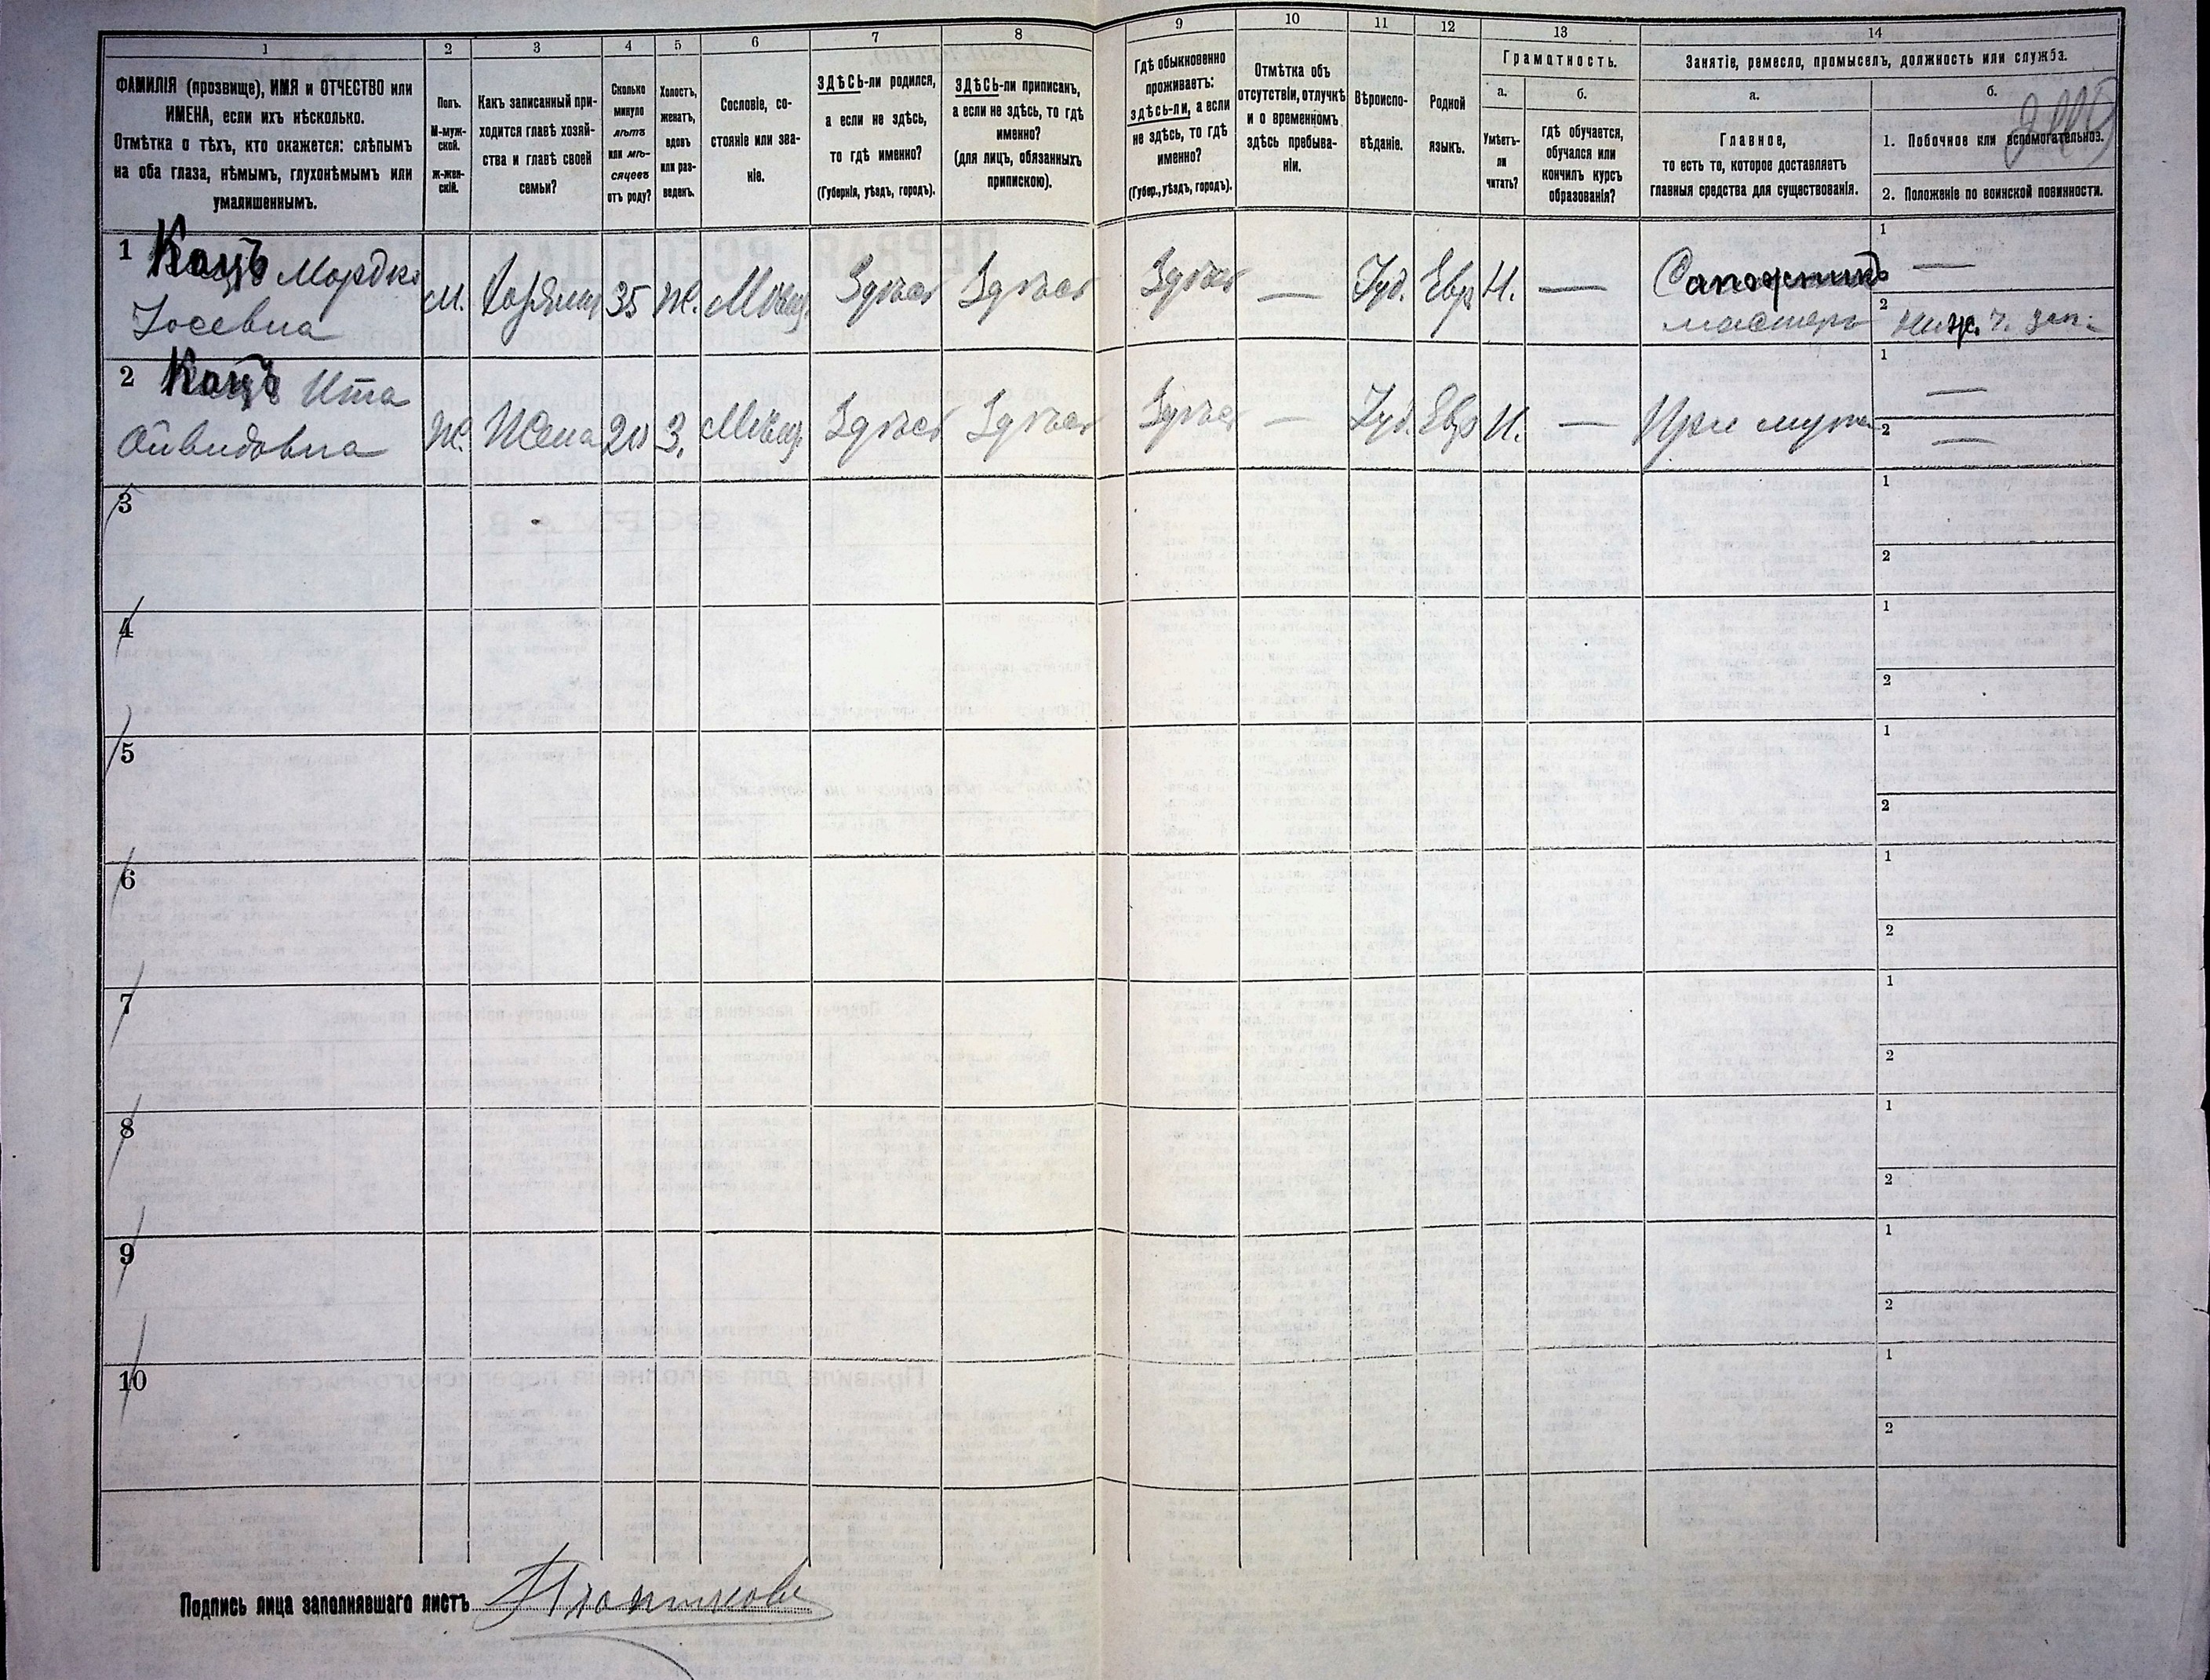 1 2 3 4 5 6 7 8 9 10 11 12 13 14
ФАМИЛІЯ (прозвище), ИМЯ и ОТЧЕСТВО или
ИМЕНА, если ихъ нѣсколько.
Отмѣтка о тѣхъ, кто окажется: слѣпымъ
на оба глаза, нѣмымъ, глухонѣмымъ или
умалишеннымъ.
Полъ.
М-муж-
ской.
ж-жен-
скій.
Какъ записанный при-
ходится главѣ хозяй-
ства и главѣ своей
семьи?
Сколько
минуло
лѣтъ
или мѣ-
сяцевъ
отъ роду?
Холостъ,
женатъ,
вдовъ
или раз-
веденъ.
Сословіе, со-
стояніе или зва-
ніе.
ЗДѢСЬ-ли родился,
а если не здѣсь,
то гдѣ именно?
(Губернія, уѣздъ, городъ).
ЗДѢСЬ-ли приписан,
а если не здѣсь, то гдѣ
именно?
(для лицъ, обязанныхъ
припискою).
Гдѣ обыкновенно
проживаетъ:
здѣсь-ли, а если
не здѣсь, то гдѣ
именно?
(Губер., уѣздъ, городъ).
Отмѣтка объ
отсутствіи, отлучкѣ
и о временномъ
здѣсь пребыва-
ніи.
Вѣроиспо-
вѣданіе.
Родной
языкъ.
Грамотность.
а.
Умѣетъ-
ли
читать?
б.
гдѣ обучается,
обучался или
кончилъ курсъ
образованія?
Занятіе, ремесло, промыселъ, должность или служба.
а.
Главное,
то есть то, которое доставляетъ
главныя средства для существованія.
б.
1. Побочное или вспомогательное.
2. Положеніе по воинской повинности.
1 Кацъ Мордко М. Хозяинъ 35 Ж. Мѣщ. Здѣсь Здѣсь Здѣсь — Іуд. Евр Н. — Сапожникъ 1 —
Іосевна мастеръ 2 Ниж. ч. зап.
2 Кацъ Ита Ж. Жена 20 З. Мѣщ. Здѣсь Здѣсь Здѣсь — Іуд. Евр Н. — При мужѣ 1 —
2 —
3 1
2
4 1
2
5 1
2
6 1
2
7 1
2
8 1
2
9 1
2
10 1
2
Подпись лица заполнявшаго листъ